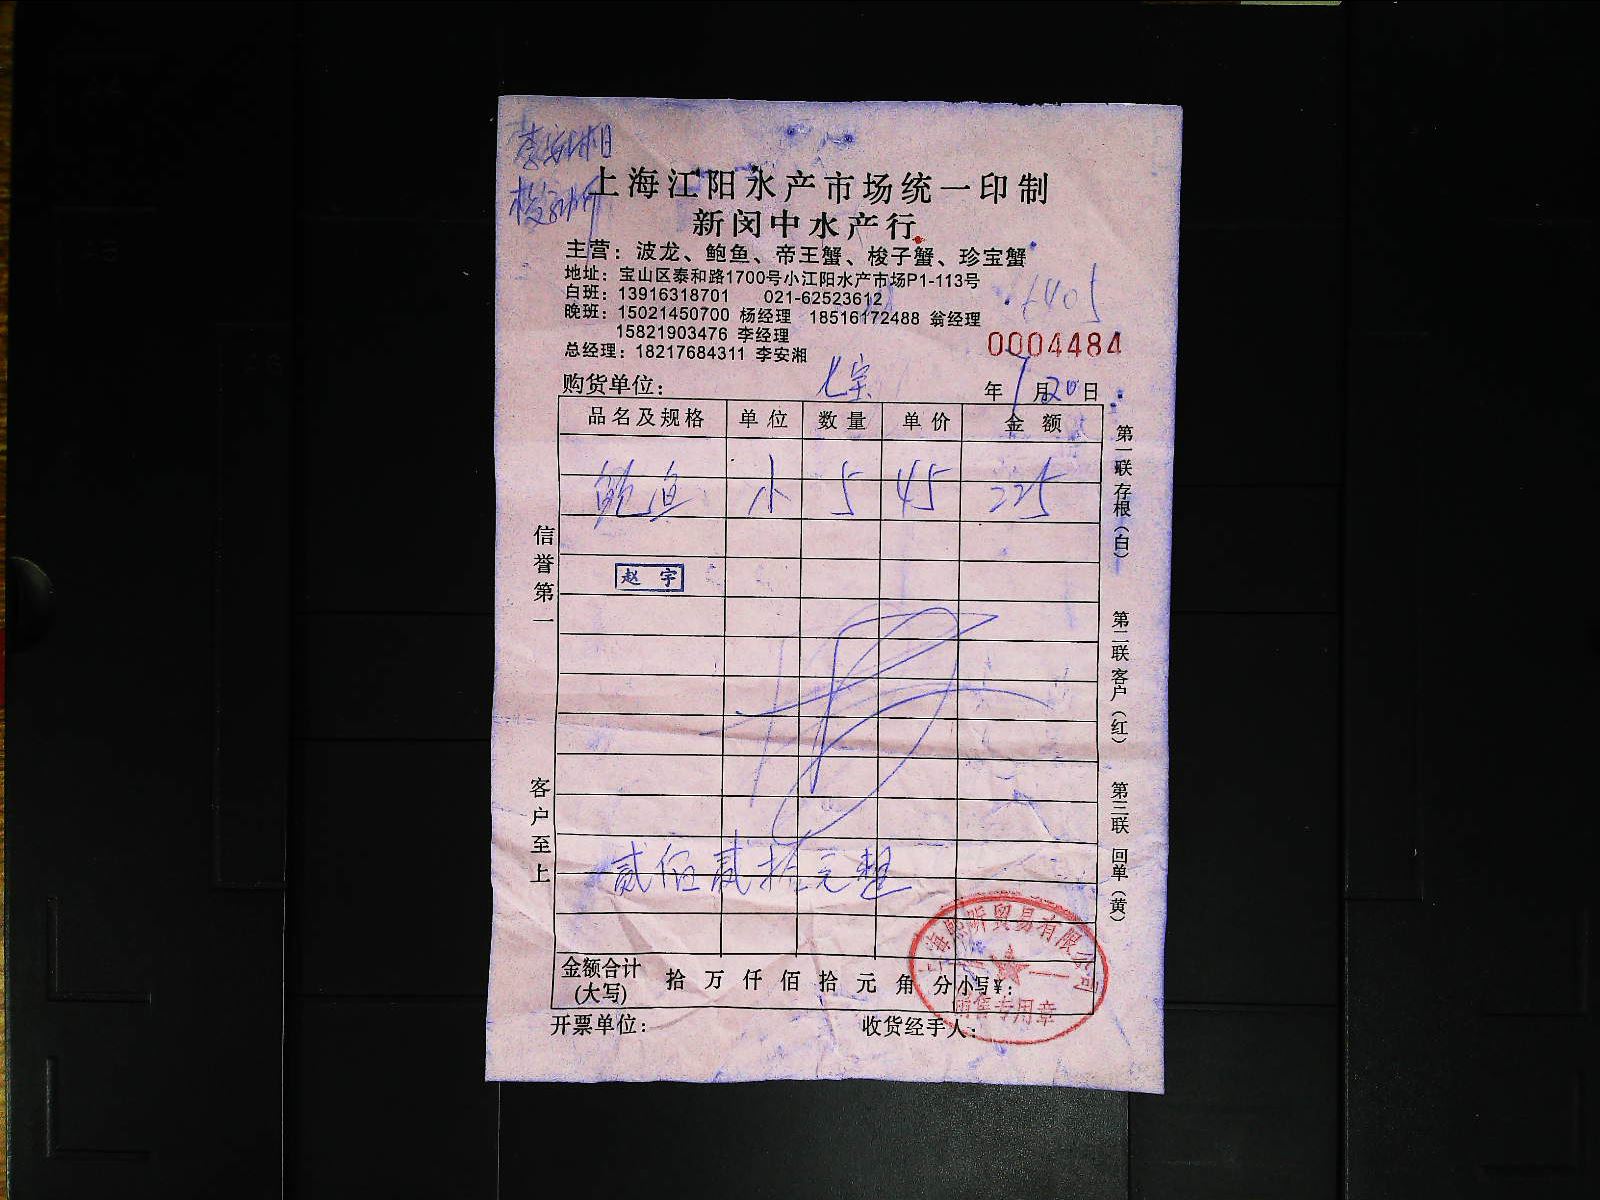 上海江阳水产市场统一印制
新闵中水产行
主营：波龙、鲍鱼、帝王蟹、梭子蟹、珍宝蟹
地址：宝山区泰和路1700号小江阳水产市场P1-113号
白班：13916318701 021-62523612
晚班：15021450700 杨经理 18516172488 翁经理
15821903476 李经理
总经理：18217684311 李安湘
0004484
购货单位：七宝 年 9月20日
品名及规格 单位 数量 单价 金额
鲍鱼 小 5 45 225
赵宇
贰佰贰拾元整
金额合计(大写) 拾 万 仟 佰 拾 元 角 分 小写¥：
开票单位： 收货经手人：
信誉第一
客户至上
第一联 存根（白）
第二联 客户（红）
第三联 回单（黄）
贸易有限公司
销售专用章